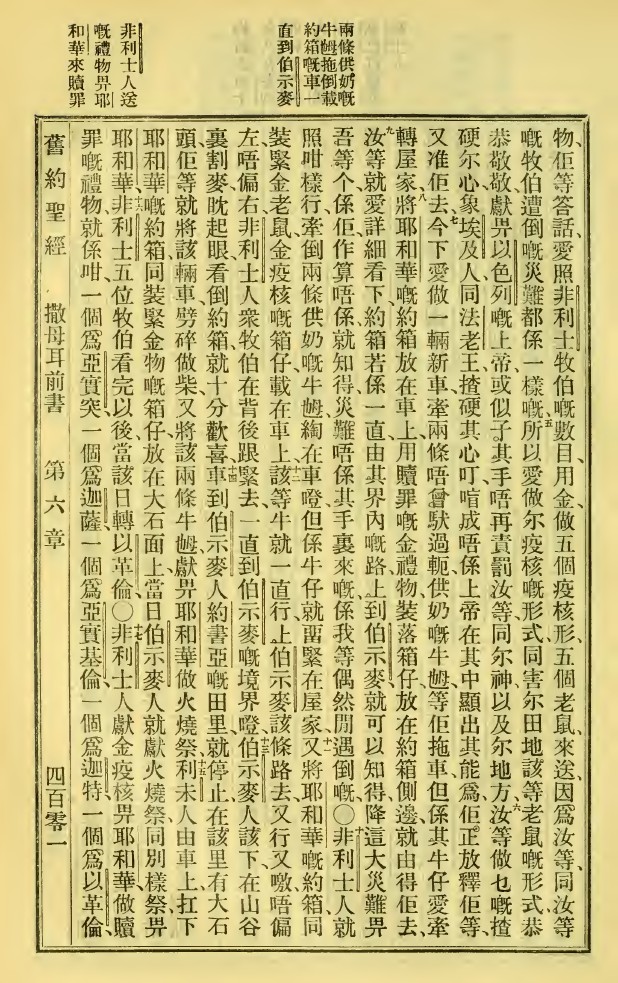 兩條供奶嘅
牛𡜵拖倒載
約箱嘅車一
直到伯示麥
非利士人送
嘅禮物畀耶
和華來贖罪
物、佢等答話、愛照非利士牧伯嘅數目、用金做五個疫核形、五個老鼠來送、因爲汝等、同汝等
嘅牧伯遭倒嘅災難、都係一樣嘅、五所以愛做尔疫核嘅形式、同害尔田地該等老鼠嘅形式、恭
恭敬敬獻畀以色列嘅上帝、或似子其手唔再責罰汝等、同尔神、以及尔地方、六汝等做乜嘅揸
硬尔心、象埃及人同法老王揸硬其心、叮喧、唔係上帝在其中顯出其能爲、佢正放釋佢等
又准佢去、七今下愛做一輛新車、牽兩條唔曾馱過軛供奶嘅牛、等佢拖車、但係其牛仔愛牽
轉屋家、八將耶和華嘅約箱放在車上、用贖罪嘅金禮物裝落箱仔、放在約箱側邊、就由得佢去、
九汝等就愛詳細看下、約箱若係一直由其界內嘅路上到伯示麥、就可以知得降這大災難畀
吾等个係佢、作算唔係、就知得災難唔係其手裏來嘅、係我等偶然閒遇倒嘅、〇十非利士人就
照咁樣行、牽倒兩條供奶嘅牛、綯在車嶝、但係牛仔就畱緊在屋家、十一又將耶和華嘅約箱、同
裝緊金老鼠金疫核嘅箱仔、載在車上、十二該等牛就一直行上伯示麥該條路去、又行又噭、唔偏
左、唔偏右、非利士人衆牧伯在背後跟緊去、一直到伯示麥嘅境界嶝、十三伯示麥人該下在山谷
裏割麥、眈起眼看倒約箱、就十分歡喜、十四車到伯示麥人約書亞嘅田里就停止、在該里有大石
頭、佢等就將該輛車劈碎做柴、又將該兩條牛獻畀耶和華做火燒祭、十五利未人由車上扛下
耶和華嘅約箱、同裝緊金物嘅箱仔、放在大石面上、當日伯示麥人就獻火燒祭、同別樣祭畀
耶和華、十六非利士五位牧伯看完以後、當該日轉以革倫、〇十七非利士人獻金疫核畀耶和華、做贖
罪嘅禮物、就係咁、一個爲亞實突、一個爲迦薩、一個爲亞實基倫、一個爲迦特、一個爲以革倫、
舊約聖經　撒母耳前書　第六章　四百零一